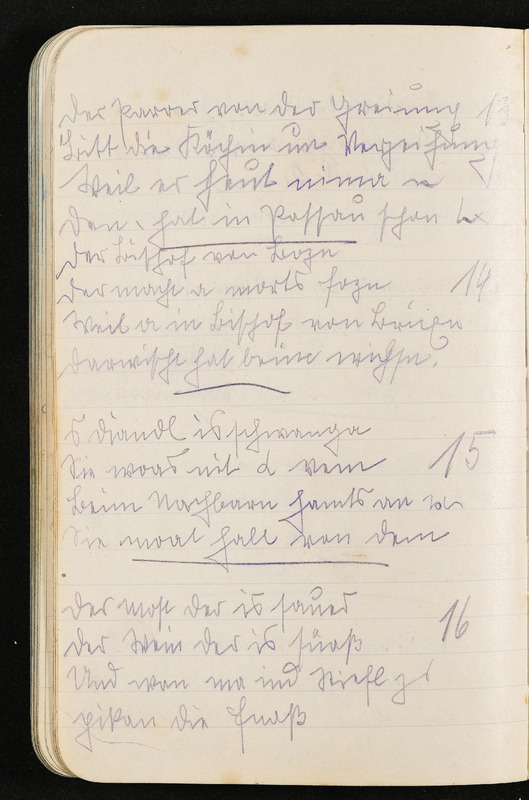 Der Parrer von der Greiung 13
Bitt die Köchin um Verzeihung
Weil er heut nima
Den hat in Possau schon
Der Bischof von Bozn
Der macht a morts fozn 14
Weil a in Bischof von Brixn
Darwischt hat beim wichsn.
s Diandl is schwanga
Sie woas nit vem 15
Beim Nachbarn hamts an
Sie moat halt von dem
Der Most der is sauer
Der Wein der is süaß 16
Und wan ma ind Stiefl
pikan die Fuaß